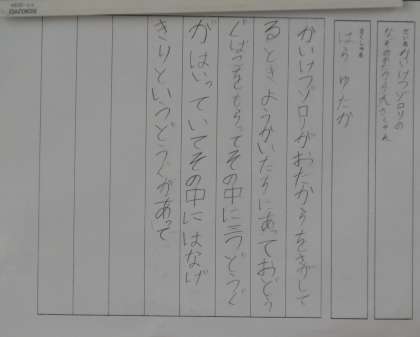 かいけつゾロリの
はら ゆたか
かいけつゾロリがおたからをさがして
るときようかいたちにあっておどう
ぐばこをもらってその中に三つどうぐ
がはいっていてその中にはなげ
きりというどうぐがあって